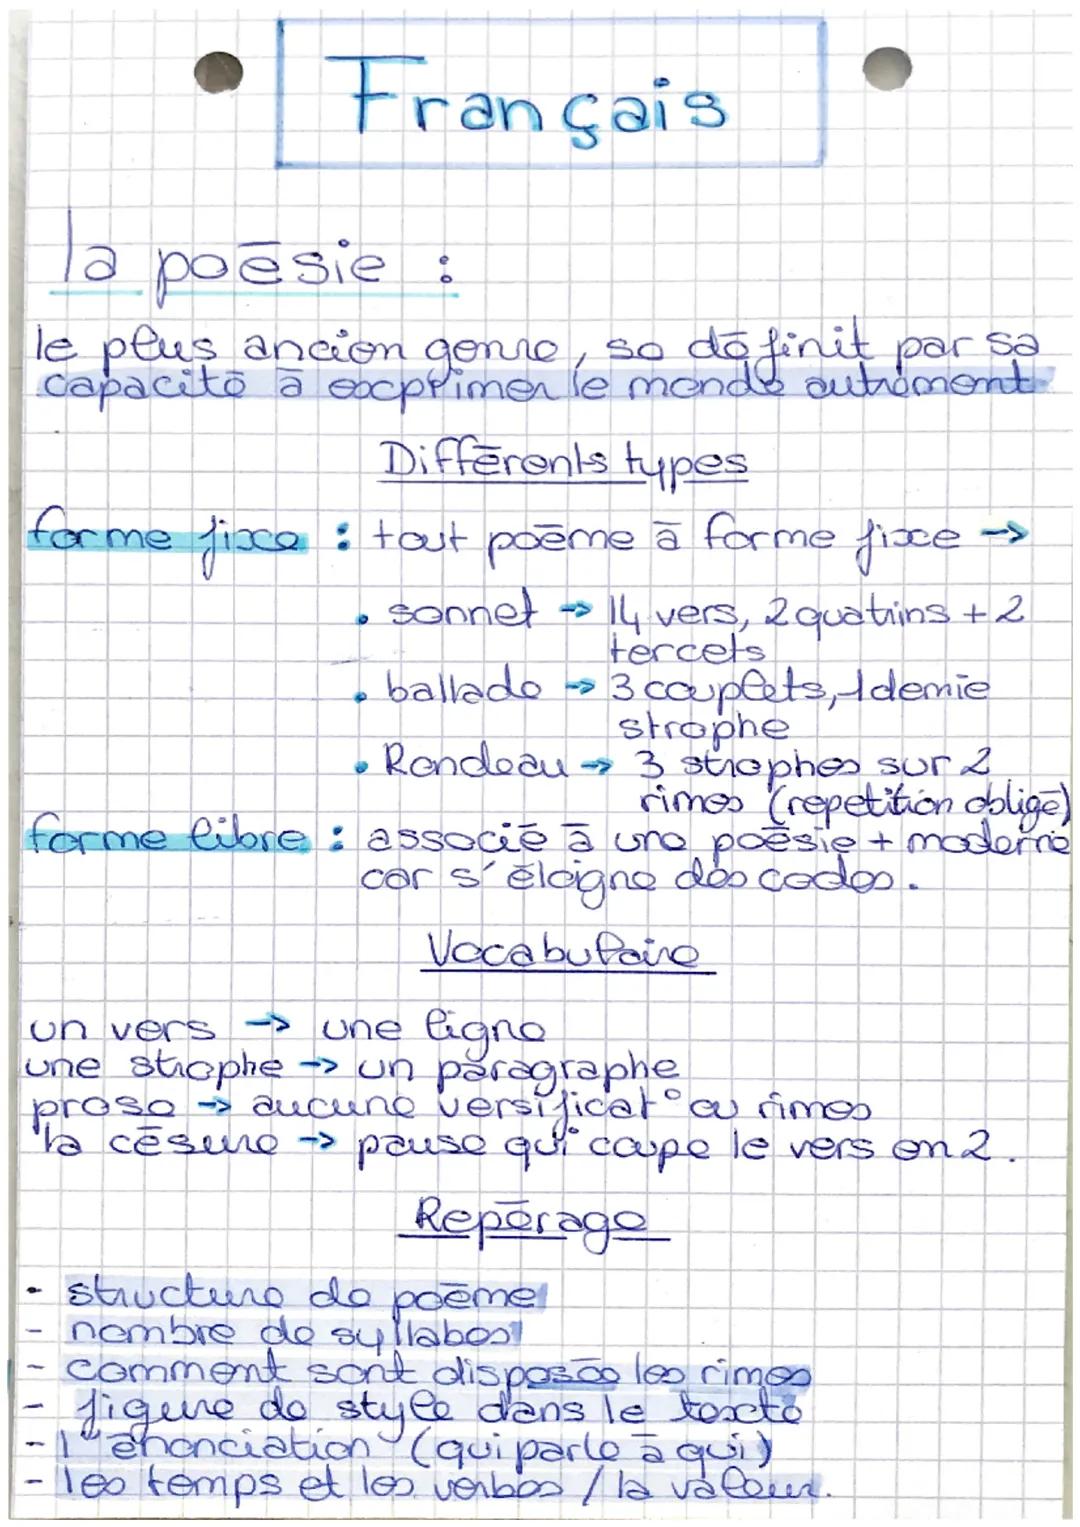 Français
la poésie :
le plus ancien genre, se définit par sa
capacité à excprimer le monde autrement
Différents types
forme fixe : tout poème à forme fixe →
• sonnet → 14 vers, 2 quatrins + 2
tercets
• ballade → 3 couplets, 1 demie
strophe
• Rondeau → 3 strophes sur 2
rimes (repetition obligé)
forme libre : associé à une poésie + moderne
car s'éloigne des codes.
Vocabulaire
un vers → une ligne
une strophe → un paragraphe
prose → aucune versificat° ou rimes
la césure → pause qui coupe le vers en 2.
Repérage
- structure de poème
- nombre de syllabes
- comment sont disposés les rimes
- figure de style dans le texte
- l'énonciation (qui parle à qui)
- les temps et les verbes / la valeur.